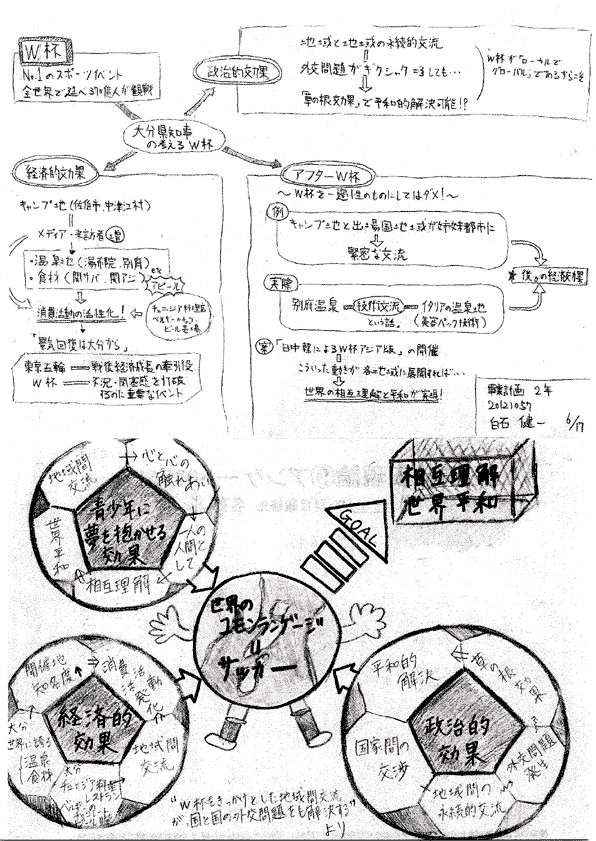 W杯
No.1のスポーツイベント
全世界で延べ370億人が観戦
政治的効果
地域と地域の永続的交流
外交問題がギクシャクしても…
「草の根効果」で平和的解決可能!?
W杯が「ローカルで
グローバル」であるからこそ
大分県知事
の考えるW杯
経済的効果
キャンプ地(佐伯市、中津江村)
メディア・来訪者
・温泉地(湯布院、別府)
・食材(関サバ、関アジ) etc
アピール
消費活動の活性化!
チュニジア料理店
ベルギーチョコ
ビール売場
「景気回復は大分から」
東京五輪 戦後経済成長の牽引役
W杯 不況・閉塞感を打破
するのに重要なイベント
アフターW杯
〜W杯を一過性のものにしてはダメ!〜
例
キャンプ地と出場国地域が姉妹都市に
緊密な交流
実際
別府温泉 技術交流 イタリアの温泉地
という話。 (美容パック技術)
案
「日中韓によるW杯アジア版」の開催
こういった動きが各地域に展開すれば…
世界の相互理解と平和が実現!
後々の経済効果
事業計画 2年
20121057
白石 健一 6/17
地域間
交流
心と心の
触れあい
一人の
人間と
して
相互理解
世界平和
青少年に
夢を抱かせる
効果
GOAL
相互理解
世界平和
世界の
コモンランゲージ
=
サッカー
開催地
知名度↑
消費活
動活発化
地域間
交流
大分
チュニジア料理
レストラン
大分
世界に誇る
温泉
食材
経済的
効果
平和的
解決
草の根効果
外交問題
発生
地域間の
永続的交流
国家間の
交渉
政治的
効果
"W杯をきっかけとした地域間交流
が、国と国の外交問題をも解決する"
より